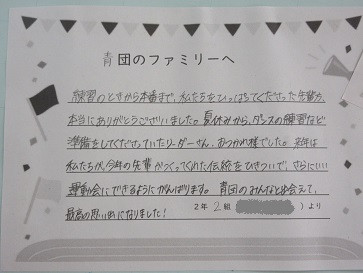 青団のファミリーへ
練習のときから本番まで、私たちをひっぱってくださった先輩方、
本当にありがとうございました。夏休みから、ダンスの練習など
準備をしてくださっていたリーダーさん、おつかれ様でした。来年は
私たちが、今年の先輩がつくってくれた伝統をひきついで、さらにいい
運動会にできるようにがんばります。青団のみんなと出会えて、
最高の思い出になりました！
2年2組（ ）より